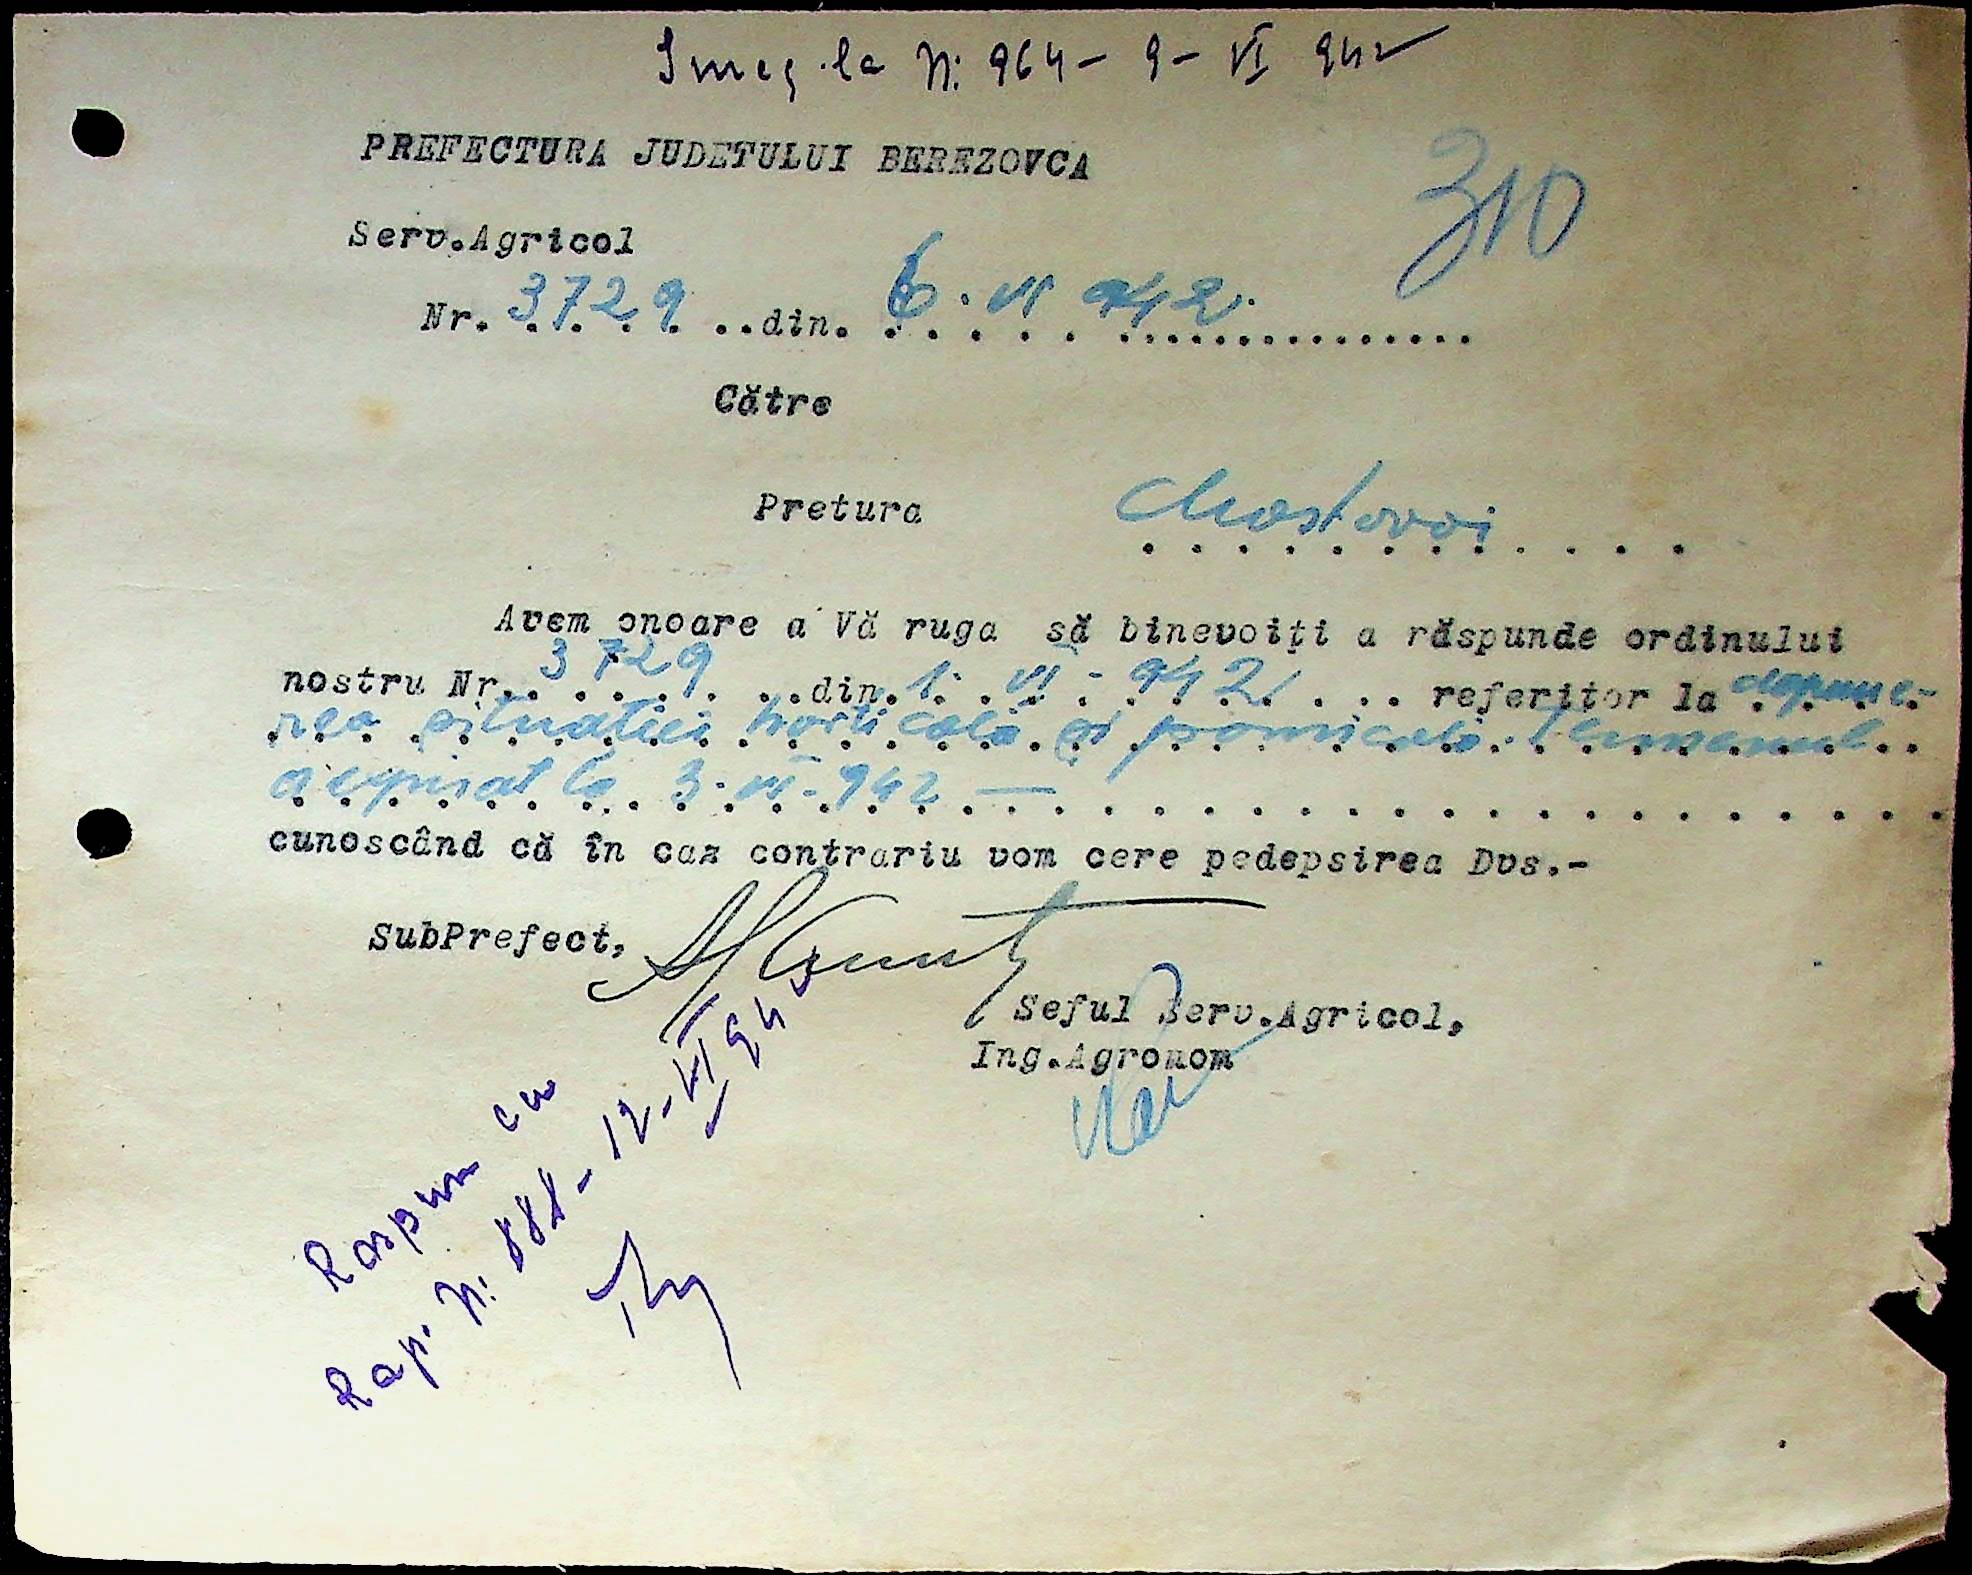 Inreg. la N: 964 - 9 - VI 942
310
PREFECTURA JUDETULUI BEREZOVCA
Serv.Agricol
Nr. 3729 ..din. 6. VI 942.
Către
Pretura Mostovoi
Avem onoare a Vă ruga să binevoiţi a răspunde ordinului
nostru Nr. 3729 ..din. 1. VI - 942 ... referitor la depune-
rea situatiei horticolă și pomicolă. Termenul
a expirat la 3. VI - 942 —
cunoscând că în caz contrariu vom cere pedepsirea Dvs.-
SubPrefect,
Seful Serv.Agricol,
Ing.Agronom
Raspuns cu
Rap. N: 888 - 12 - VI 942